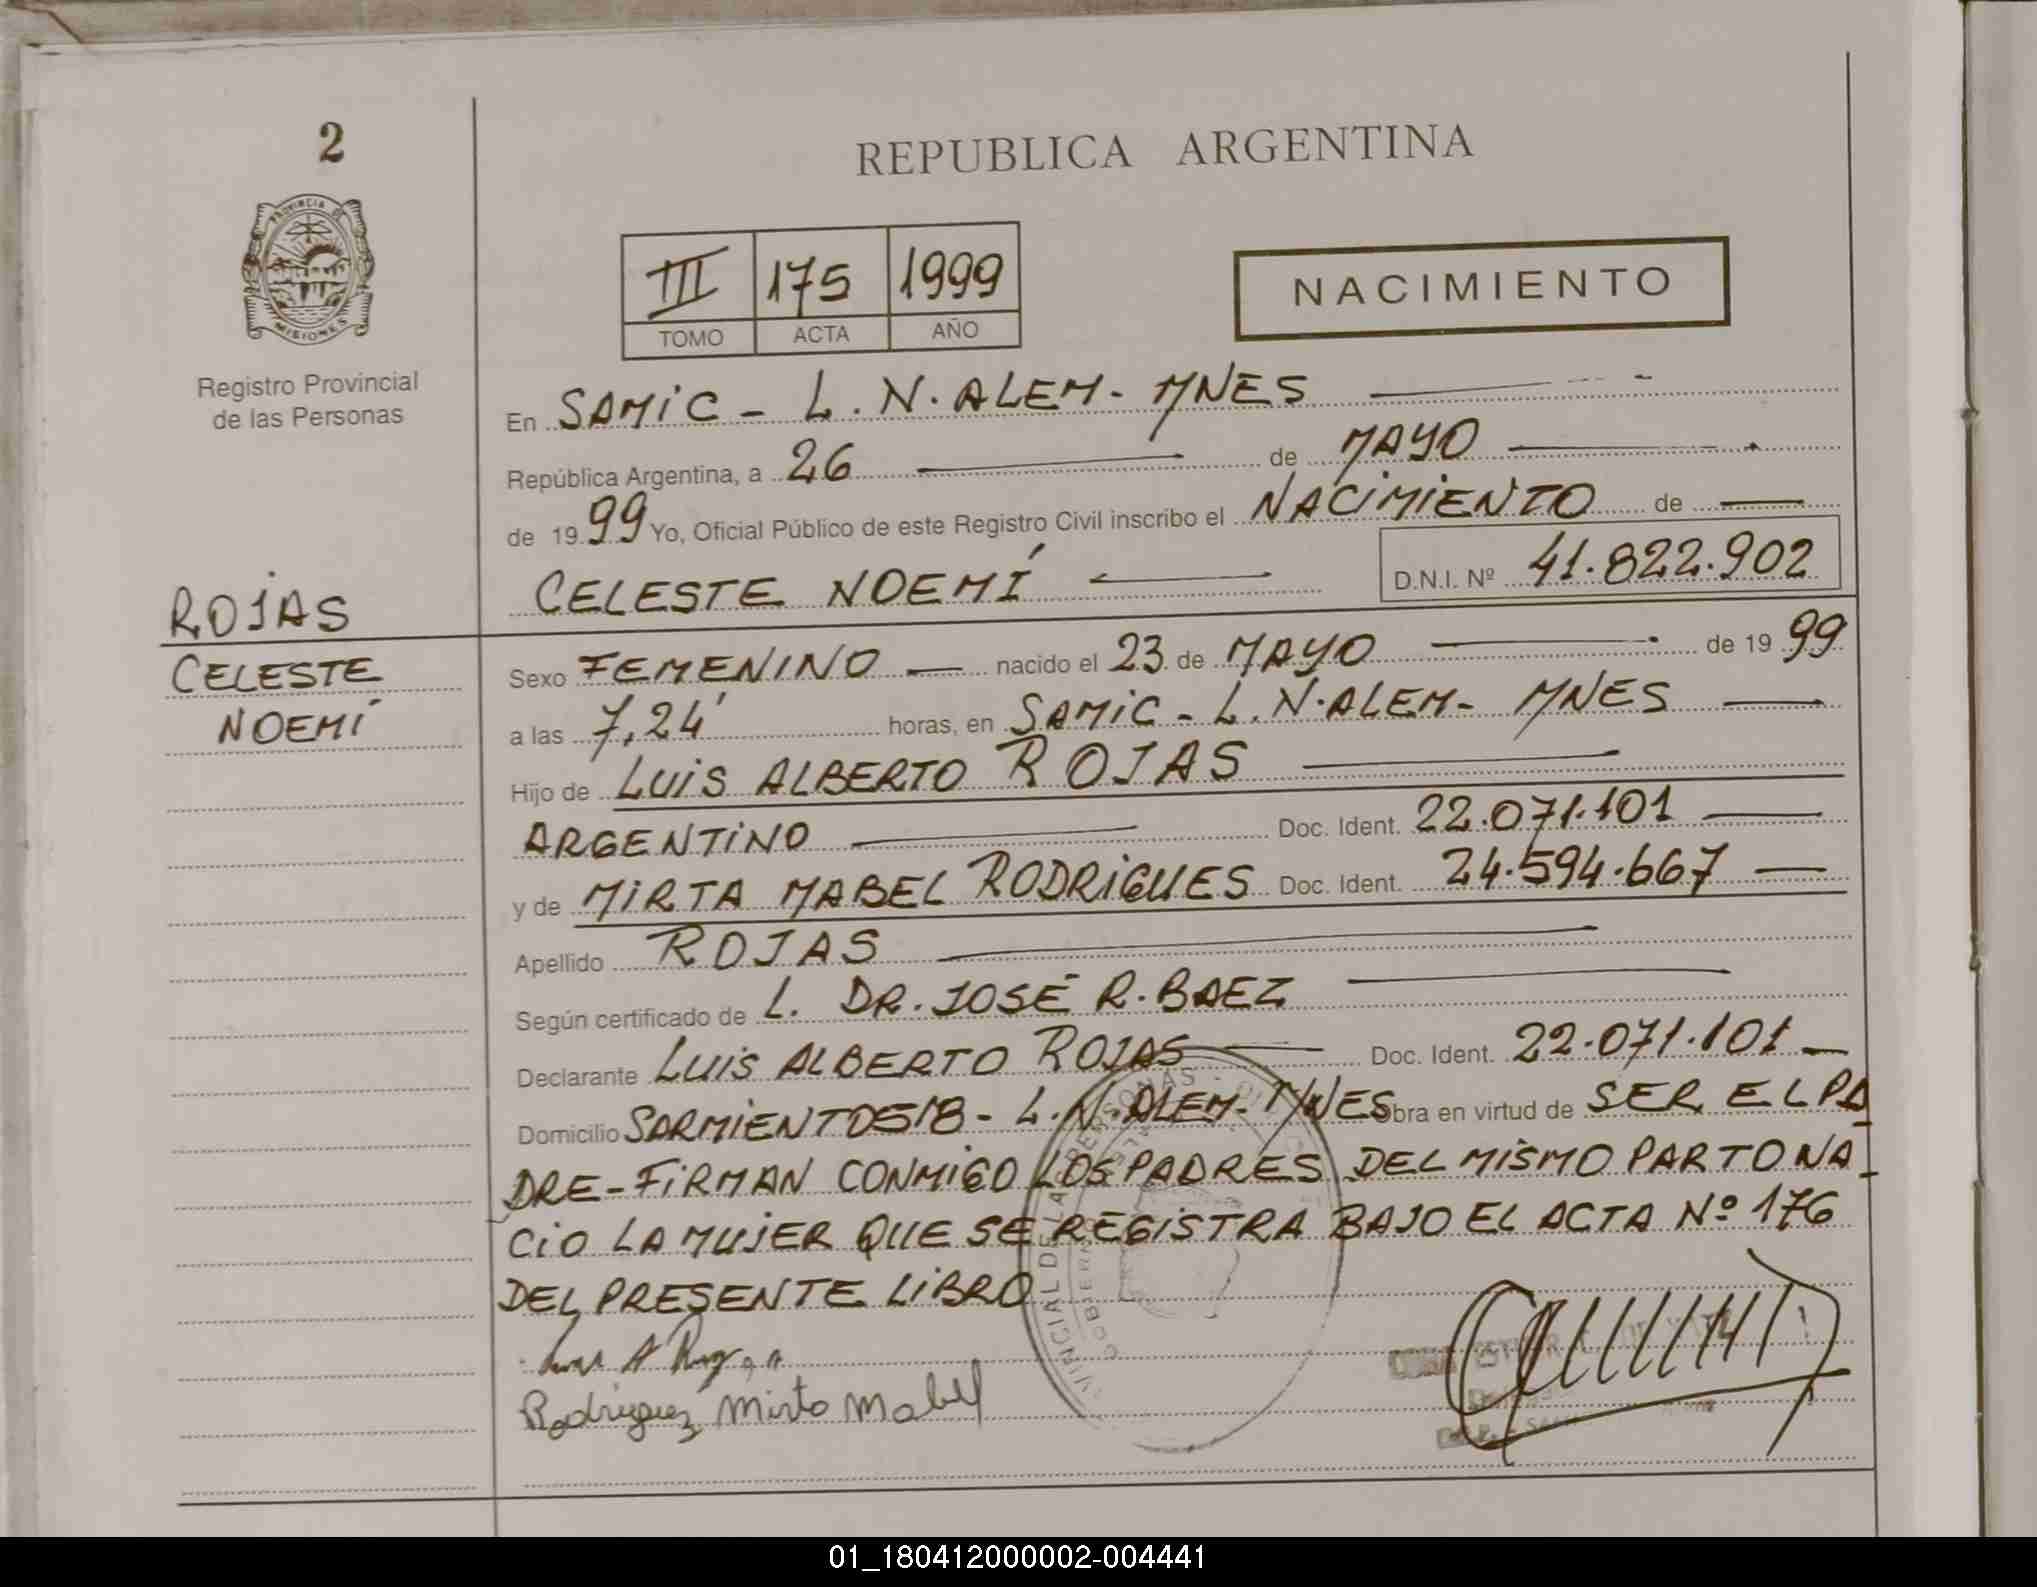 2
REPUBLICA ARGENTINA
PROVINCIA DE
MISIONES
Registro Provincial
de las Personas
III 175 1999
TOMO ACTA AÑO
NACIMIENTO
En SAMIC - L. N. ALEM - MNES
República Argentina, a 26 de MAYO
de 1999 Yo, Oficial Público de este Registro Civil inscribo el NACIMIENTO de
CELESTE NOEMÍ D.N.I. Nº 41.822.902
ROJAS
CELESTE
NOEMÍ
Sexo FEMENINO nacido el 23 de MAYO de 1999
a las 7,24' horas, en SAMIC - L. N. ALEM - MNES
Hijo de LUIS ALBERTO ROJAS
ARGENTINO Doc. Ident. 22.071.101
y de MIRTA MABEL RODRIGUES Doc. Ident. 24.594.667
Apellido ROJAS
Según certificado de L. DR. JOSÉ R. BAEZ
Declarante LUIS ALBERTO ROJAS Doc. Ident. 22.071.101
Domicilio SARMIENTO 518 - L. N. ALEM - MNES Obra en virtud de SER EL PA
DRE - FIRMAN CONMIGO LOS PADRES. DEL MISMO PARTO NA-
CIO LA MUJER QUE SE REGISTRA BAJO EL ACTA Nº 176
DEL PRESENTE LIBRO
Rodriguez Mirta Mabel
01_180412000002-004441